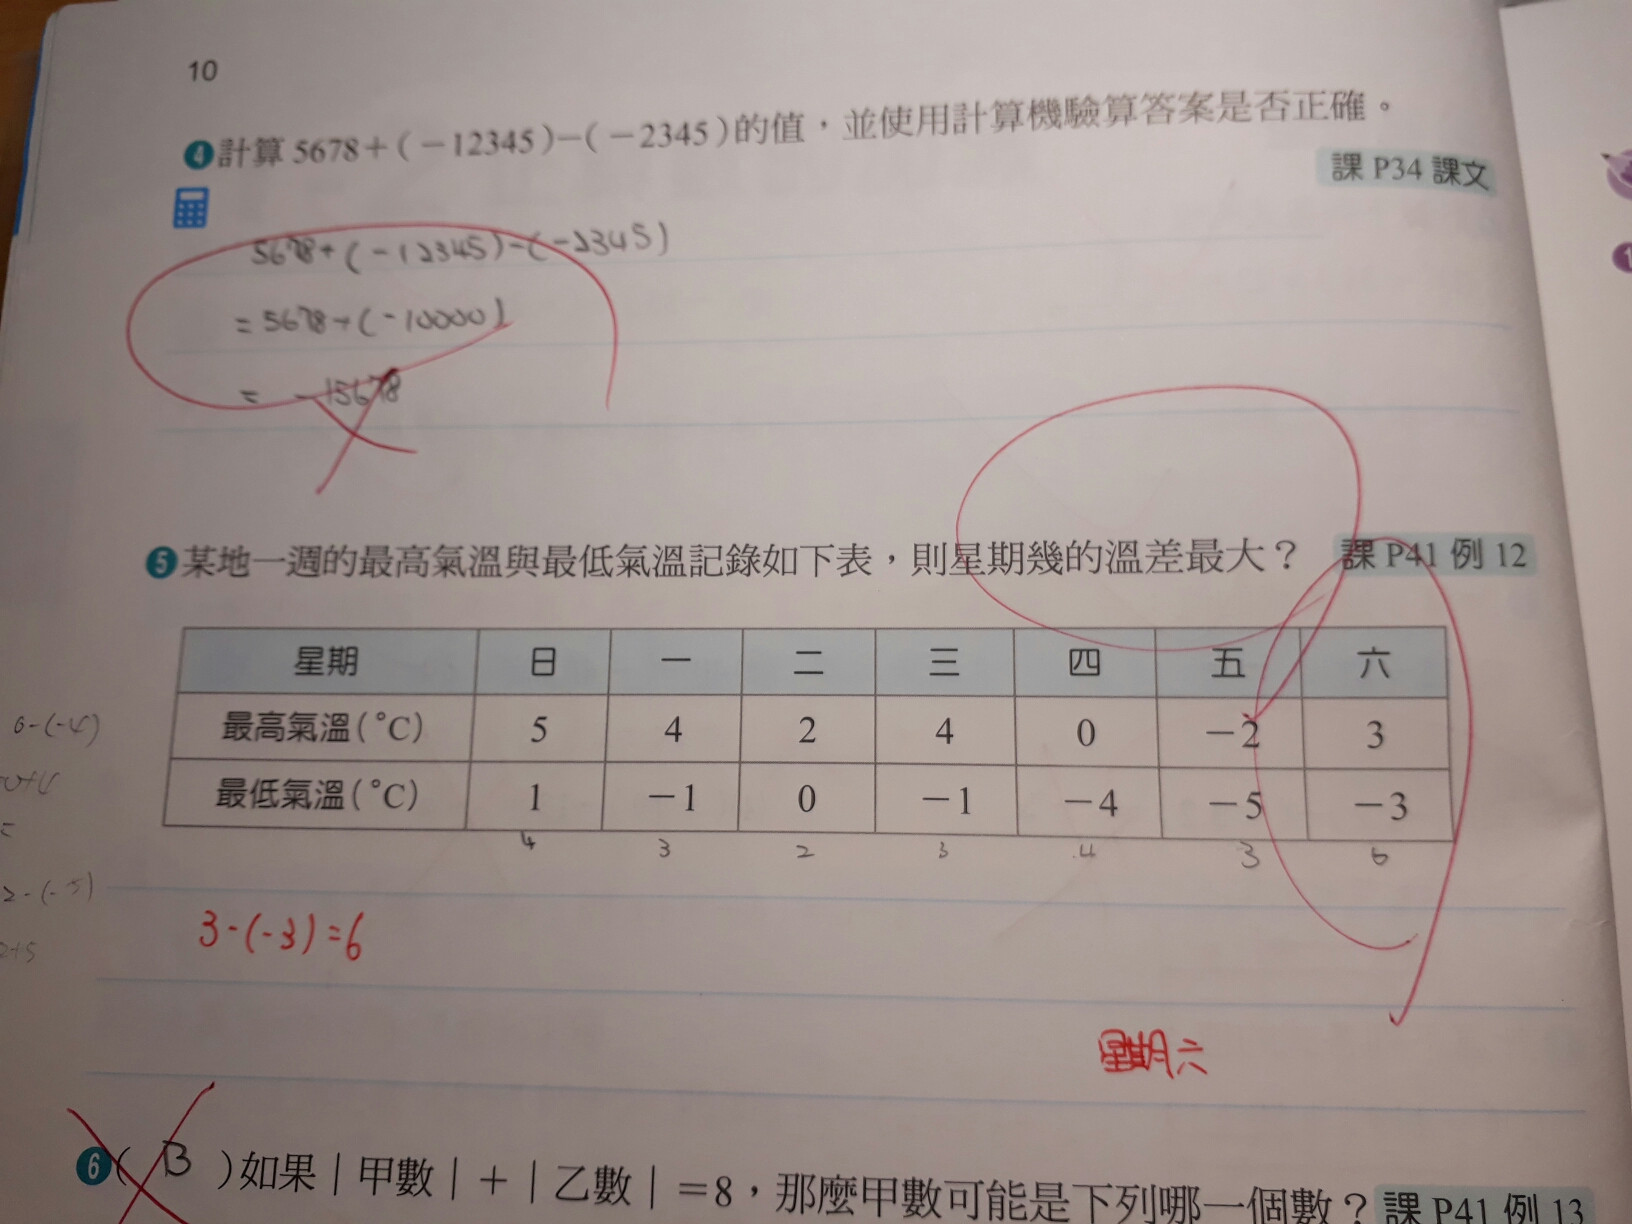 10
4 計算 5678+(-12345)-(-2345)的值，並使用計算機驗算答案是否正確。
課 P34 課文
5678+(-12345)-(-2345)
=5678+(-10000)
= -15678
5 某地一週的最高氣溫與最低氣溫記錄如下表，則星期幾的溫差最大？ 課 P41 例 12
星期 日 一 二 三 四 五 六
最高氣溫(°C) 5 4 2 4 0 -2 3
最低氣溫(°C) 1 -1 0 -1 -4 -5 -3
4 3 2 3 4 3 6
0-(-4)
2-(-5)
2+5
3-(-3)=6
星期六
6 ( B )如果|甲數|+|乙數|=8，那麼甲數可能是下列哪一個數？ 課 P41 例 13